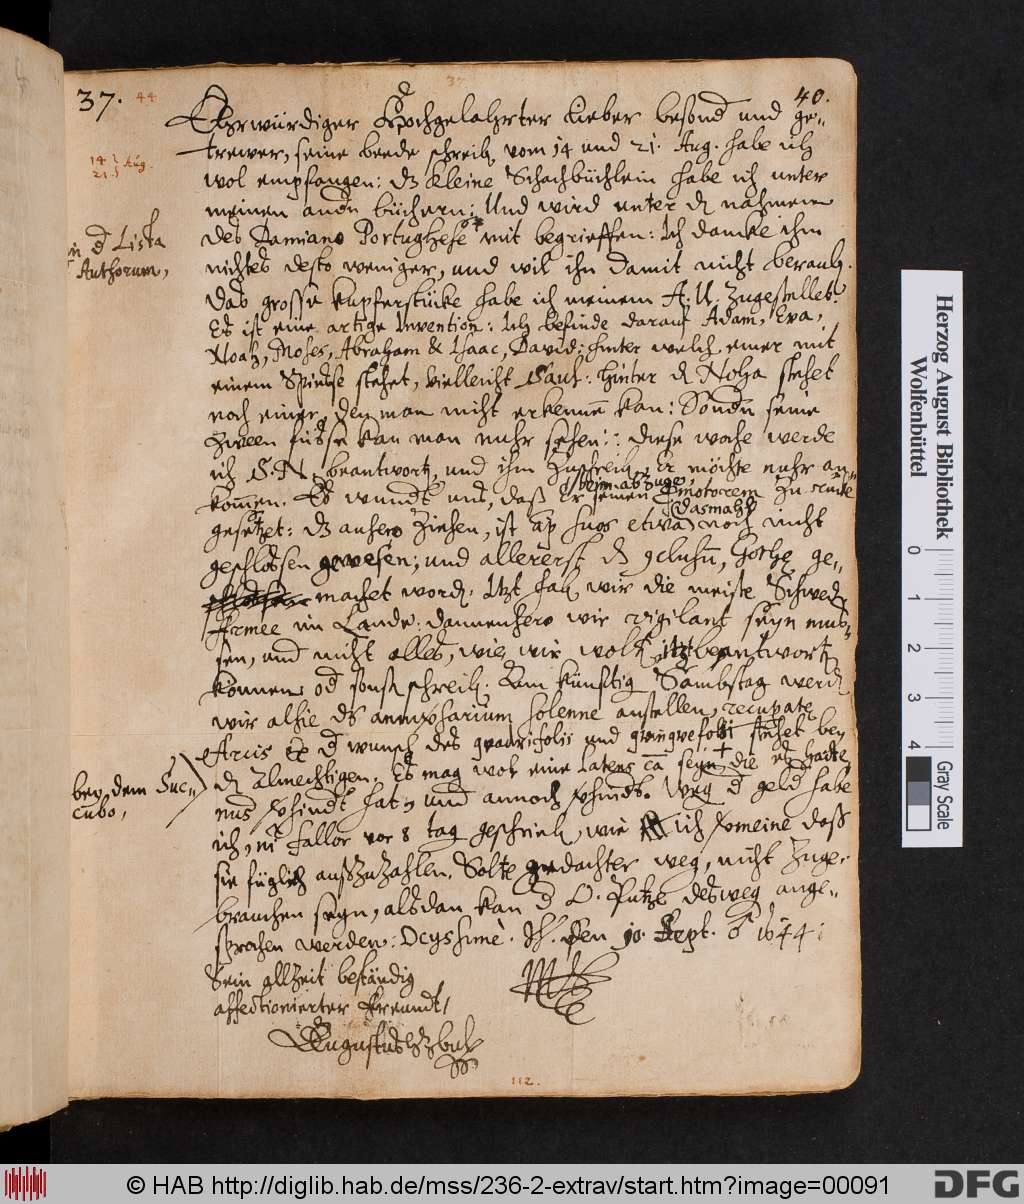 37. 44
37
40.
Ehrwürdiger Hochgelahrter Lieber besond und ge-
trewer, seine beede schreib. vom 14 und 21. Aug. habe ich
14 } Aug.
21. }
wol empfangen: dz kleine Schachbüchlein habe ich unter
meinen andn büchern: Und wird unter dn nahmen
in d Lista
Authorum,
des Damiano Portughese mit begrieffen: Ich dancke ihm
nichtes desto weniger, und wil ihn damit nicht beraub.
Das grosse kupferstücke habe ich meinem A. U. zugestellet.
Es ist eine artige Invention: Ich befinde darauf Adam, Eva,
Noah, Moses, Abraham & Isaac, David; hinter welch. einer mit
einem Spiesse stehet, vielleicht Saul: hinter dn Noha stehet
noch einer, den man nicht erkennen kan: Sondn seine
zween füsse kan man nuhr sehen: diese woche werde
ich S. N. beantwort., und ihm zuschreib. Er möchte nuhr an-
kommen. Es wundt uns, daß Er seinen
beym abzuge,
Promotorem zu rücke
gesetzet: dz anhero ziehen, ist ap suos etwa
dasmahls
noch nicht
geschlossen gewesen; und allererst dn Gothe ge-
machet word. Itzt hab. wir die meiste Schwed.
Armee im Lande: dannenhero wir vigilant seyn müs-
sen, und nicht alles, wie wir wolt. itzt beantwort.
können od sonst schreib. Am künftig Sambstag werd.
wir alhie ds anniversarium solenne anstellen, recuperatae
Arcis Et d wunsch des quadrifolii und stehet bey
dn Almechtigen. Es mag wol eine latens ca seyn, die es harte
bey dem Suc-
cubo,
uns vhindt hat, und annoch vhindt. Weg. d geld habe
ich, ni fallor vor 8 tag geschrieb. wie ich vermeine daß
sie füglich außzuzahlen. Solte gedachter weg, nicht zuge-
brauchen seyn, alsdan kan d O. Putze desweg ange-
sprochen werden: Ocyssimè. den 10. Sept. 1644.
Sein allzeit beständig
affectionierter Freundt,
Augustus HzBuL
112.
Herzog August Bibliothek
Wolfenbüttel
0 1 2 3 4
Gray Scale
© HAB http://diglib.hab.de/mss/236-2-extrav/start.htm?image=00091
DFG